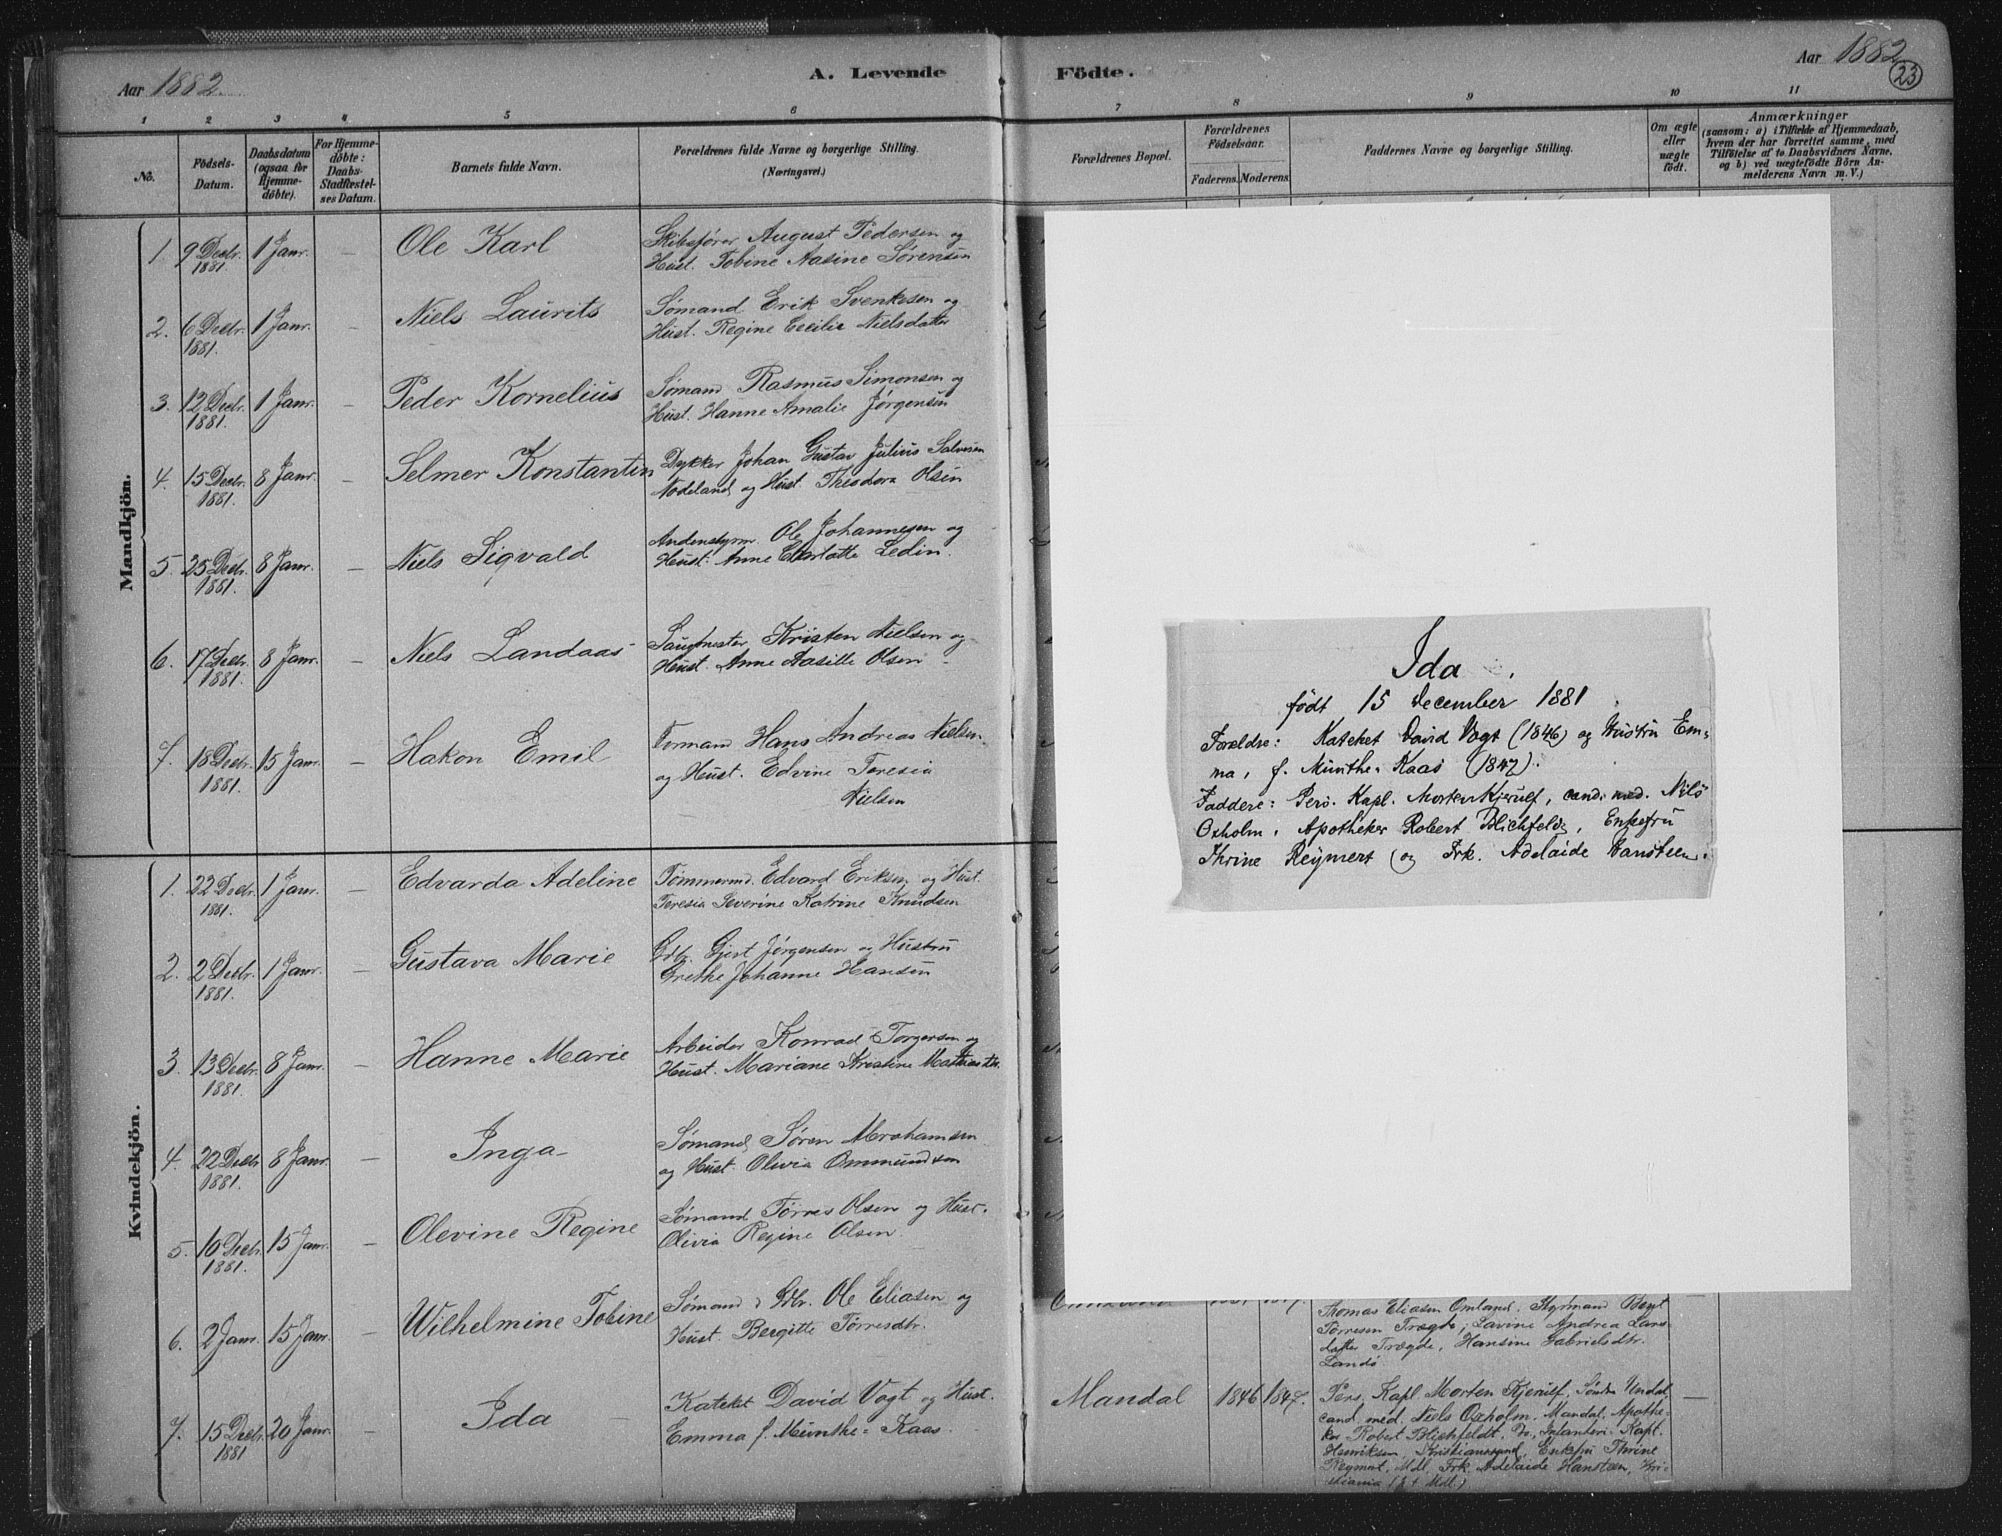 Aar 1882.
A. Levende
Födte.
Aar 1882
23
1 2 3 4 5 6 7 8 9 10 11
No.
Födsels-Datum.
Daabsdatum (ogsaa for Hjemmedöbte).
For Hjemmedöbte: Daabs-Stadfæstelses Datum.
Barnets fulde Navn.
Forældrenes fulde Navne og borgerlige Stilling. (Næringsvei.)
Forældrenes Bopæl.
Forældrenes Födselsaar.
Faderens. Moderens.
Faddernes Navne og borgerlige Stilling.
Om ægte eller uægte födt.
Anmærkninger
(saasom: a) i Tilfælde af Hjemmedaab,
hvem der har forrettet samme, med
Tilföielse af to Daabsvidners Navne,
og b) ved uægtefödte Börn Anmelderens Navn m. V.)
Mandkjön.
1. 9 Decbr. 1881. 1 Janr. — Ole Karl Skibsfører August Pedersen og
Hust. Tobine Aasine Sørensen
2. 6 Decbr. 1881. 1 Janr. — Niels Laurits Sømand Erik Svenkesen og
Hust. Regine Cecilie Nielsdatter
3. 12 Decbr. 1881. 1 Janr. — Peder Kornelius Sømand Rasmus Simonsen og
Hust. Hanne Amalie Jørgensen
4. 15 Decbr. 1881. 8 Janr. — Selmer Konstantin Dykker Johan Gustav Julius Salvesen
Nodeland og Hust. Theodora Olsen
5. 25 Decbr. 1881. 8 Janr. — Niels Sigvald Andenstyrm. Ole Johannesen og
Hust. Anne Charlotte Ledin.
6. 17 Decbr. 1881. 8 Janr. — Niels Landaas Saugmester Kristen Nielsen og
Hust. Anne Aasille Olsen
7. 18 Decbr. 1881. 15 Janr. — Hakon Emil Formand Hans Andreas Nielsen
og Hust. Edvine Teresia
Nielsen
Kvindekjön.
1. 22 Decbr. 1881. 1 Janr. — Edvarda Adeline Tømmermd. Edvard Eriksen og Hust.
Teresia Severine Katrine Knudsen
2. 2 Decbr. 1881. 1 Janr. — Gustava Marie Gdbr. Gjert Jørgensen og Hustru
Grethe Johanne Hansen
3. 13 Decbr. 1881. 8 Janr. — Hanne Marie Arbeider Konrad Torgersen og
Hust. Mariane Kristine
4. 22 Decbr. 1881. 8 Janr. — Inga Sømand Søren Abrahamsen
og Hust. Olivia Ommundsen
5. 10 Decbr. 1881. 15 Janr. — Olevine Regine Sømand Tørres Olsen og Hust.
Olivia Regine Olsen
6. 2 Janr. 15 Janr. — Wilhelmine Tobine Sømand Gdbr. Ole Eliasen og
Hust. Bergitte Tørresdtr.
7. 15 Decbr. 1881 20 Janr. — Ida Kateket David Vogt og Hust.
Emma f. Munthe-Kaas.
Ida
født 15 December 1881
Forældre: Kateket David Vogt (1846) og Hustru Em-
ma, f. Munthe-Kaas (1847).
Faddere: Pers. Kapl. Morten Kjerulf, cand. med. Nils
Oxholm, Apotheker Robert Blichfeldt, Enkefru
Thrine Reymert og Frk. Adelaide Hansteen.
Thomas Eliasen Omland. Styrmand Bent
Tørresen Trægde, Lavine Andrea Lars-
datter Trægde, Hansine Gabrielsdtr.
Landø
Mandal 1846 1847. Pers. Kapl. Morten Kjerulf, Søndre Undal
cand. med. Niels Oxholm, Mandal. Apothe-
ker Robert Blichfeldt, Do, Infanteri-Kapt.
Henriksen, Kristianssand, Enkefru Thrine
Reymert, Mdl. Frk. Adelaide Hansteen, Kri-
stiania